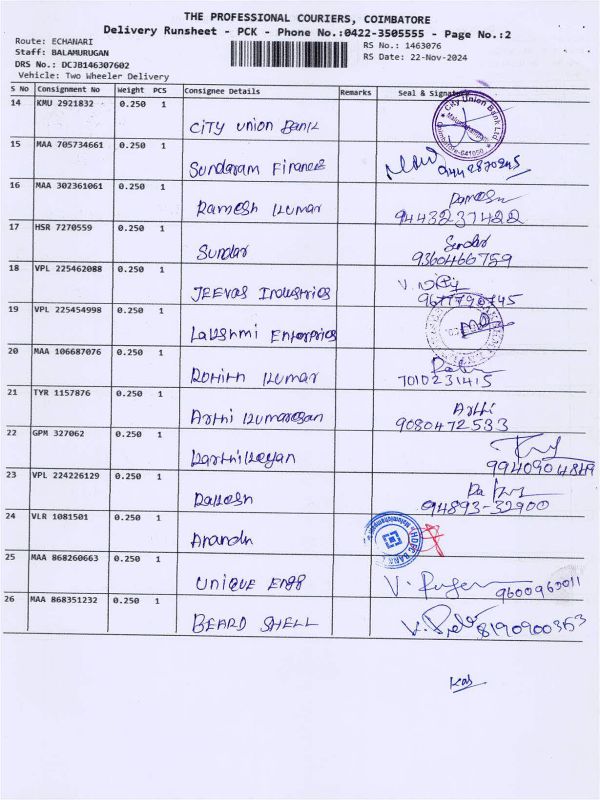 THE PROFESSIONAL COURIERS, COIMBATORE
Delivery Runsheet - PCK - Phone No.:0422-3505555 - Page No.:2
Route: ECHANARI
Staff: BALAMURUGAN
DRS No.: DCJB146307602
Vehicle: Two Wheeler Delivery
RS No.: 1463076
RS Date: 22-Nov-2024
S No Consignment No Weight PCS Consignee Details Remarks Seal & Signature
14 KMU 2921832 0.250 1 CITY UNION BANK City Union Bank Ltd Coimbatore-641050
15 MAA 705734661 0.250 1 Sundaram Finance
16 MAA 302361061 0.250 1 Ramesh Kumar Ramesh 9443237422
17 HSR 7270559 0.250 1 Sundar Sundar 9360466759
18 VPL 225462088 0.250 1 JEEVAS Industries
19 VPL 225454998 0.250 1 Lakshmi Enterprises
20 MAA 106687076 0.250 1 Rohith Kumar 7010231415
21 TYR 1157876 0.250 1 Arthi Kumaresan Arthi 9080472533
22 GPM 327062 0.250 1 Karthikeyan 9940904849
23 VPL 224226129 0.250 1 Rakesh 94893-32900
24 VLR 1081501 0.250 1 Anandh HDFC BANK
25 MAA 868260663 0.250 1 UNIQUE ENGG 9600963011
26 MAA 868351232 0.250 1 BEARD SHELL 8190900353